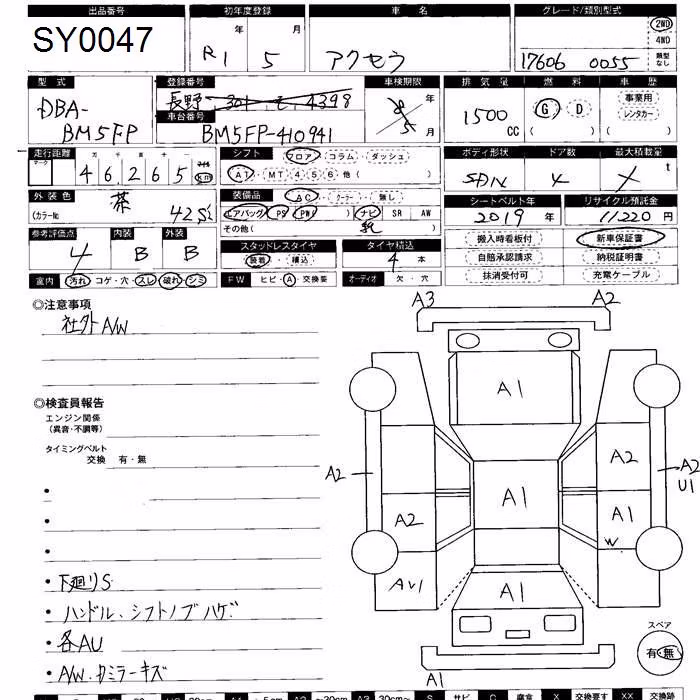 出品番号 初年度登録 車名 グレード/類別型式
SY0047 年 月 2WD
R1 5 アクセラ 4WD
17606 0055 類型なし
型式 登録番号 車検期限 排気量 燃料 車歴
DBA- 長野 301 そ 4398 年 事業用
BM5FP 車台番号 1500 G D レンタカー
BM5FP-410941 5 月 CC ( ) ( )
走行距離 万 千 百 十 一 シフト フロア コラム ダッシュ ボディ形状 ドア数 最大積載量
マーク 4 6 2 6 5 km AT MT 4 5 6 他( ) SDN 4 t
外装色 茶 装備品 AC クーラー 無し シートベルト年 リサイクル預託金
(カラーNo 42S エアバッグ PS PW( ) ナビ SR AW 2019 年 11220 円
その他( )
参考評価点 内装 外装 搬入時看板付 新車保証書
4 B B スタッドレスタイヤ タイヤ積込 自賠承認請求 納税証明書
装着 ・ 積込 4 本 抹消受付可 充電ケーブル
室内 汚れ コゲ・穴 スレ 破れ シミ FW ヒビ A 交換要 オーディオ 欠・穴
◎注意事項
社外A/W
A3 A2
◎検査員報告
エンジン関係
(異音・不調等)
タイミングベルト
交換 有・無
A1
A2 A2 A2
U1
A1
A2 A1
W
・下廻りS AV1 A1
・ハンドル、シフトノブハゲ
スペア
・各AU 有・無
・A/W、カミラーキズ
A1